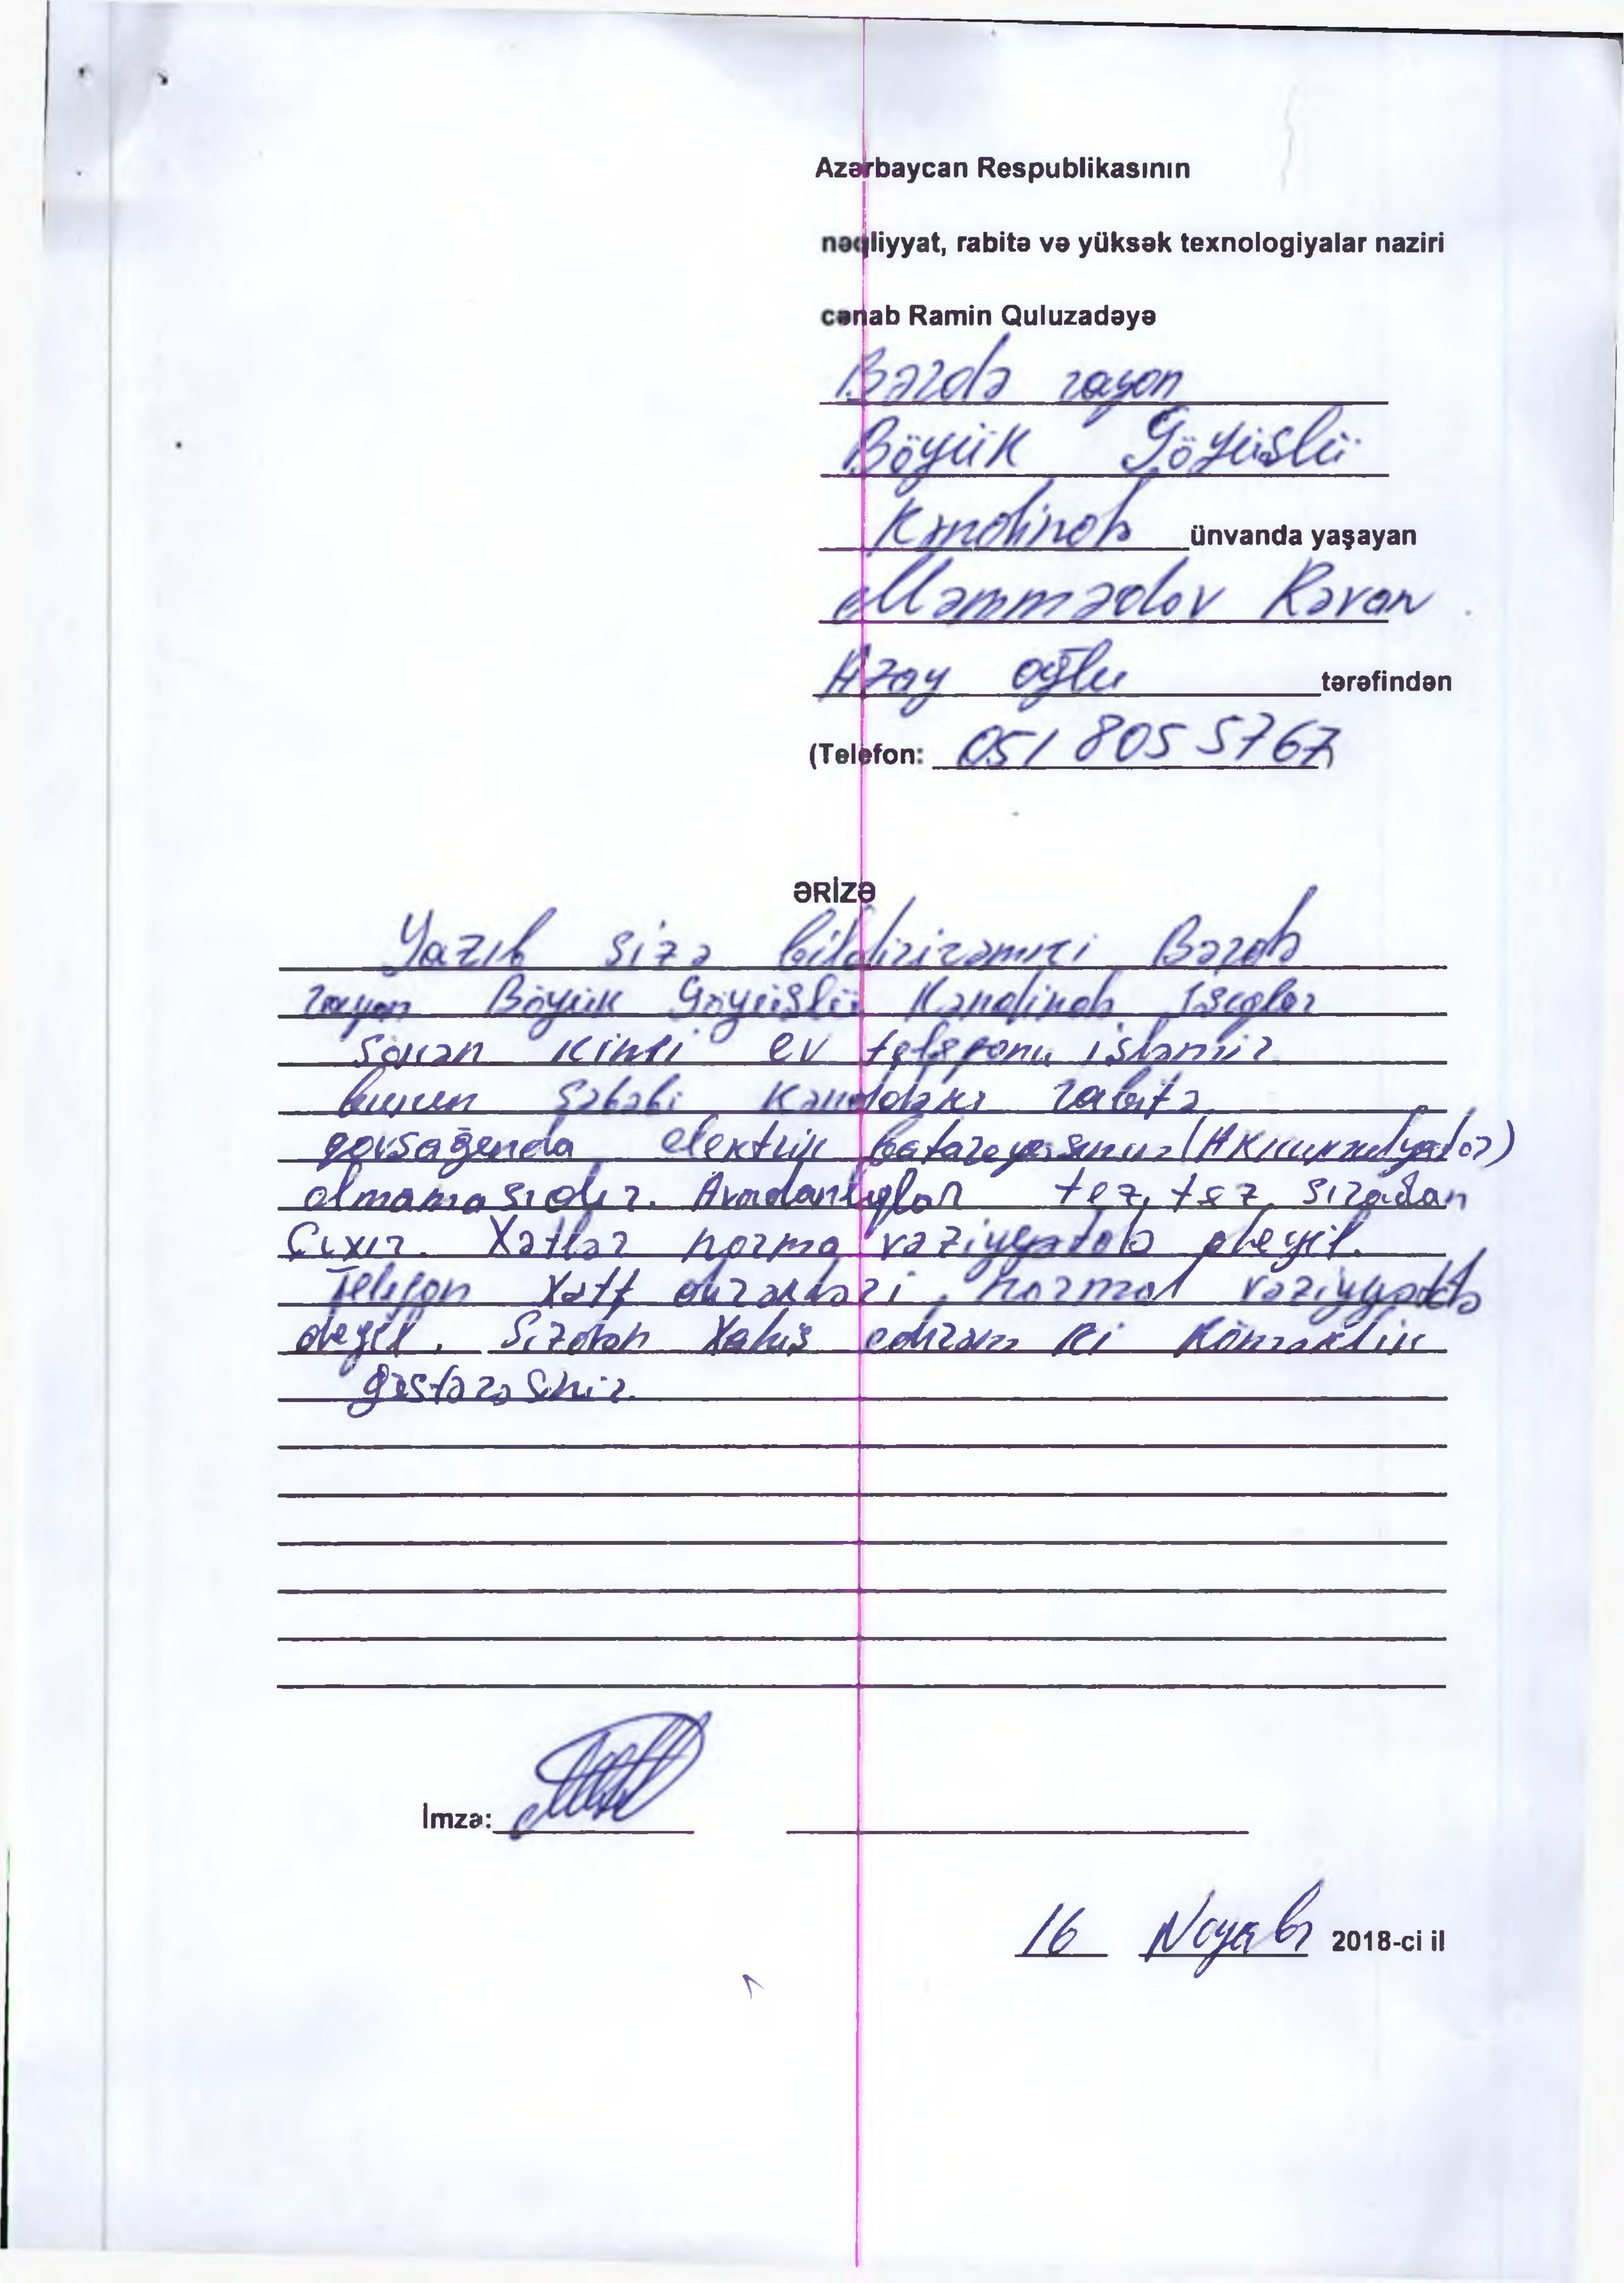 Azərbaycan Respublikasının
nəqliyyat, rabitə və yüksək texnologiyalar naziri
cənab Ramin Quluzadəyə
Bərdə rayon
Böyük Göyüşlü
Kəndində ünvanda yaşayan
Məmmədov Rəvan
Azay oğlu tərəfindən
(Telefon: 051 805 5767)
ƏRİZƏ
Yazıb sizə bildirirəmki Bərdə
rayon Böyük Göyüşlü Kəndində
sönən kimi ev telefonu işləmir
bunun səbəbi Kənddəki rabitə
qovşağında elektrik (Akkumulyator)
olmamasıdır. Avadanlıqlar tez, tez sıradan
Çıxır. Xətlər norma vəziyyətdə deyil.
Telefon Xətt dirəkləri, normal vəziyyətdə
deyil. Sizdən Xahiş edirəm ki Köməklik
göstərəsiniz.
İmza:
16 Noyabr 2018-ci il